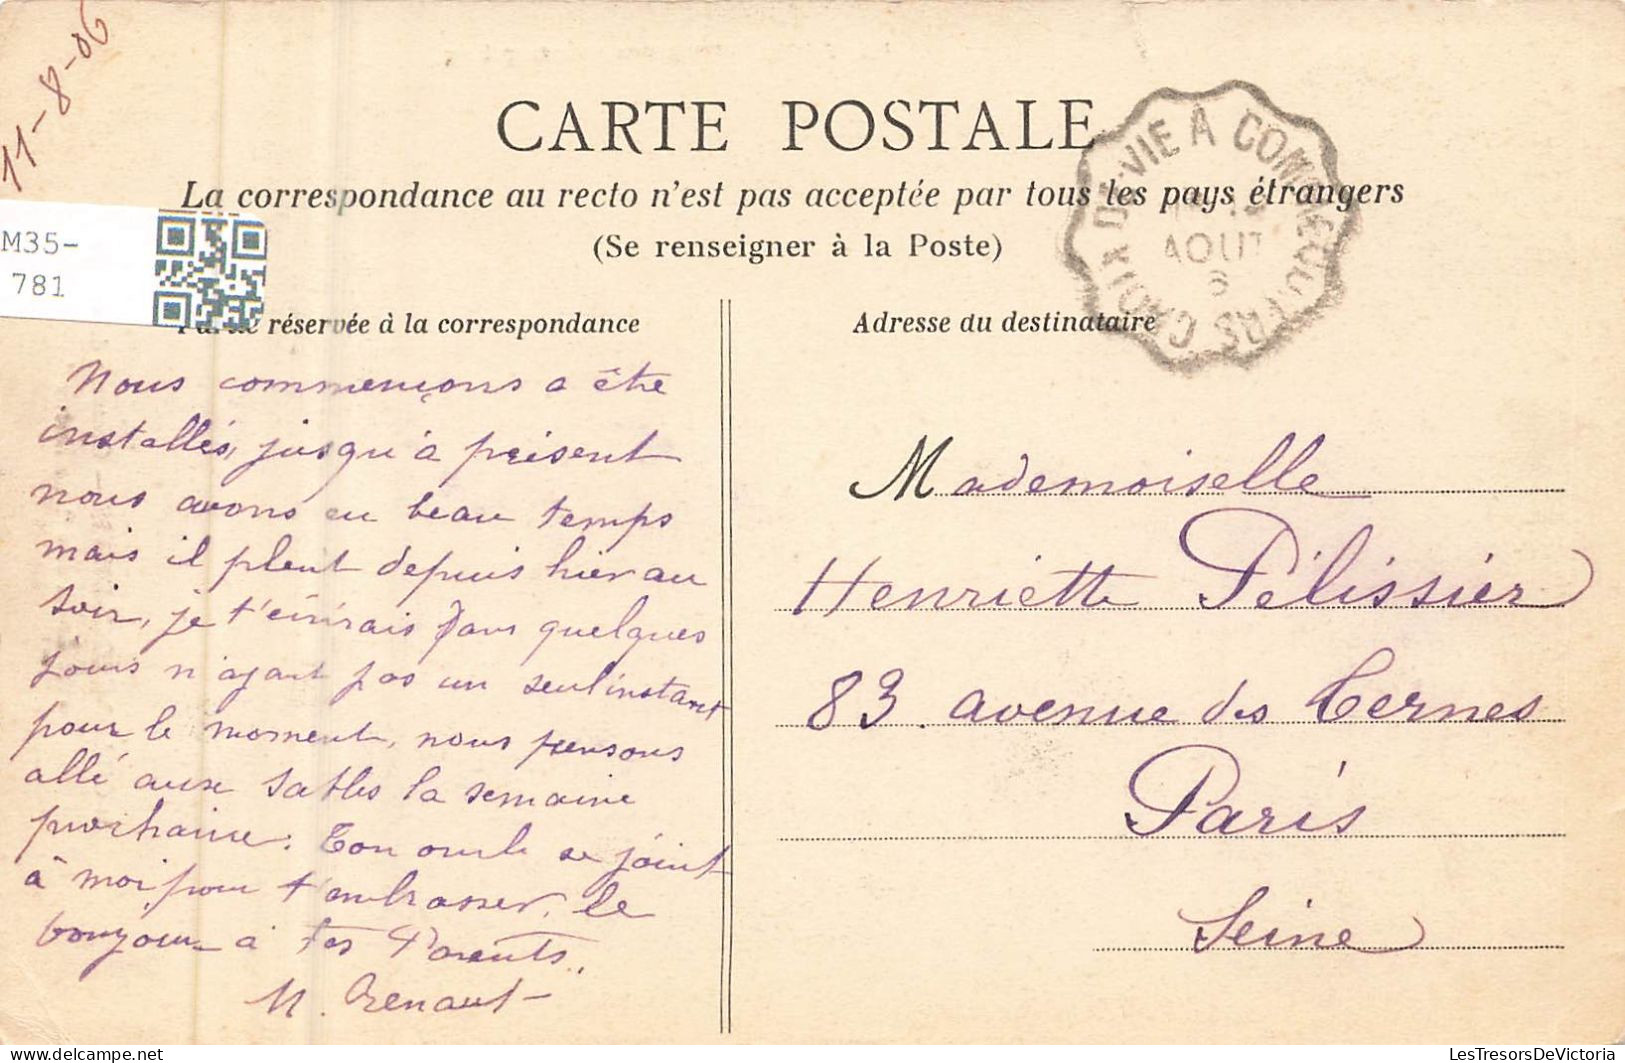 11-8-06
CARTE POSTALE
La correspondance au recto n'est pas acceptée par tous les pays étrangers
(Se renseigner à la Poste)
M35-
781
CROIX DE-VIE A COMMEQUIERS
AOUT
6
réservée à la correspondance
Adresse du destinataire
Nous commençons a être
installés, jusqu'à préisent
nous avons eu beau temps
mais il pleut depuis hier au
soir, je t'écrirais dans quelques
jours n'ayant pas un seul instant
pour le moment, nous pensons
allé aux Sables la semaine
prochaine. Ton oncle se joint
à moi pour t'embrasser, le
bonjour à tes Parents.
M. Renaut
Mademoiselle
Henriette Pélissier
83. avenue des Ternes
Paris
Seine
LesTresorsDeVictoria
delcampe.net